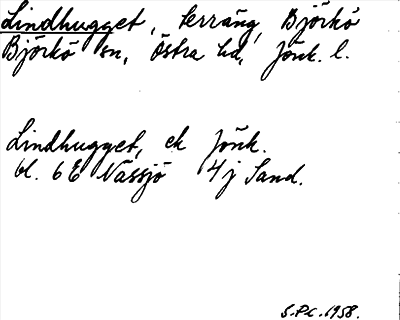 Lindhugget, terräng, Björkö
Björkö sn, Östra hd, Jönk. l.
Lindhugget, ek Jönk.
bl. 6E Nässjö 4j Sand.
S.P.C. 1958.